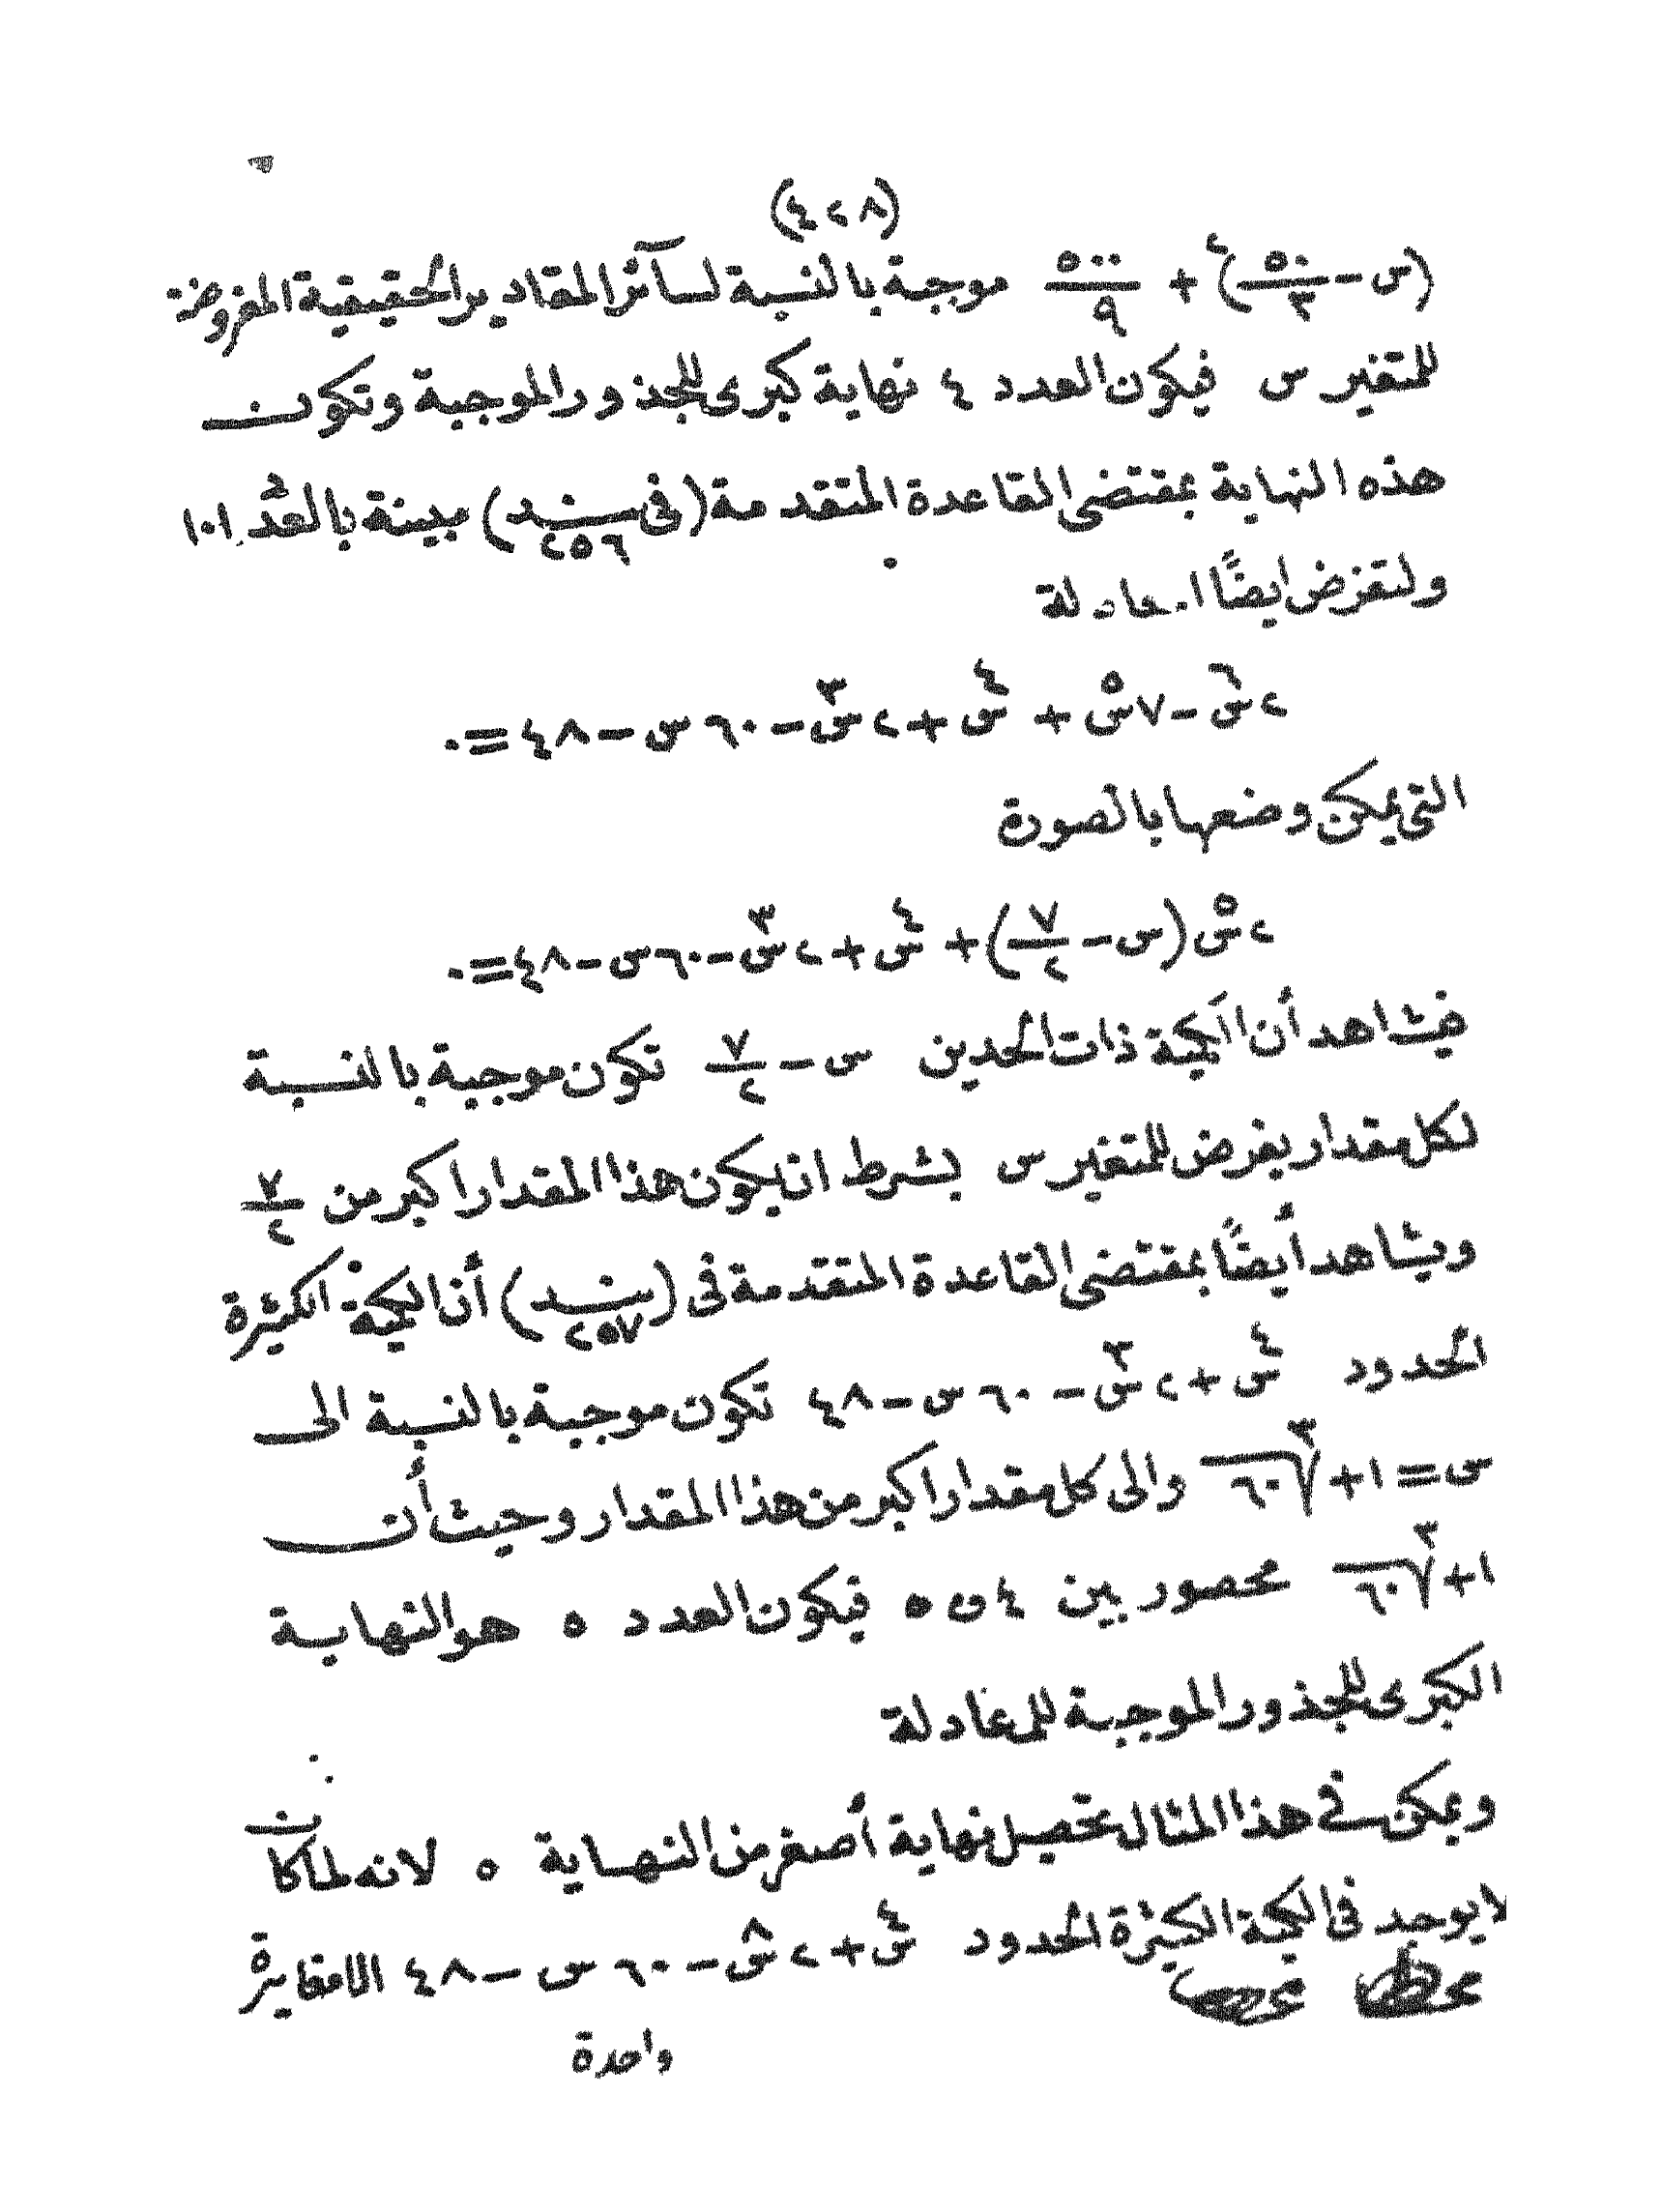 (٤٢٨)
(س - ٥٠/٣)٢ + ٥٠٠/٩ موجبة بالنسبة لسآئر المقادير الحقيقية المفروضة
للمتغير س فيكون العدد ٤ نهاية كبرى للجذور الموجبة وتكون
هذه النهاية بمقتضى القاعدة المتقدمة (فى بند ٢٥٦) مبينة بالعدد ١٠١
ولنفرض ايضًا المعادلة
٢س٦ - ٧س٥ + س٤ + ٢س٣ - ٦٠س - ٤٨ = ٠
التى يمكن وضعها بالصورة
٢س٥ (س - ٧/٢) + س٤ + ٢س٣ - ٦٠س - ٤٨ = ٠
فيشاهد أن الكمية ذات الحدين س - ٧/٢ تكون موجبة بالنسبة
لكل مقدار يفرض للمتغير س بشرط ان يكون هذا المقدار اكبر من ٧/٢
ويشاهد أيضًا بمقتضى القاعدة المتقدمة فى (بند ٢٥٧) أن الكمية الكثيرة
الحدود س٤ + ٢س٣ - ٦٠س - ٤٨ تكون موجبة بالنسبة الى
س = ١ + ٣√٦٠ والى كل مقدار اكبر من هذا المقدار وحيث أن
١ + ٣√٦٠ محصور بين ٤ ى ٥ فيكون العدد ٥ هو النهاية
الكبرى للجذور الموجبة للمعادلة
ويمكن فى هذا المثال تحصيل نهاية أصغر من النهاية ٥ لانه لما كان
لا يوجد فى الكمية الكثيرة الحدود س٤ + ٢س٣ - ٦٠س - ٤٨ الا مغايرة
واحدة